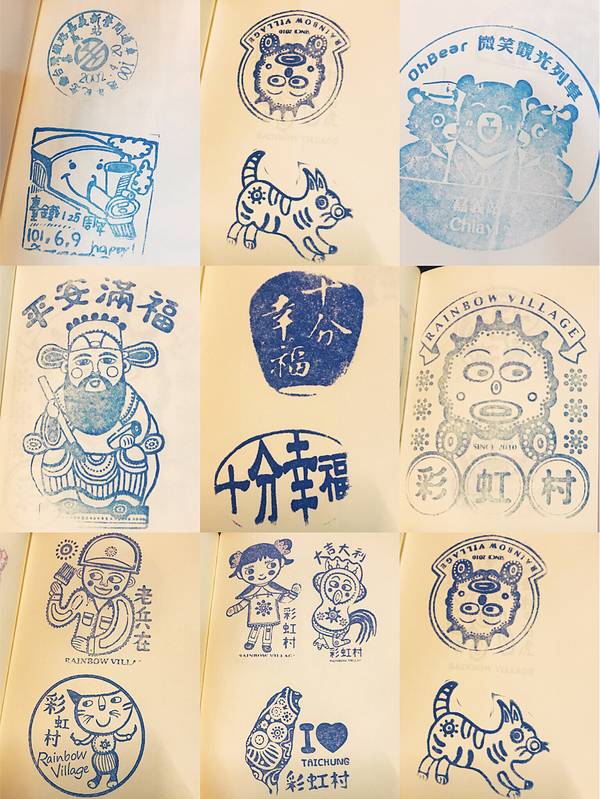 100
2001.
臺鐵125周年
101.6.9 happy!
RAINBOW VILLAGE
SINCE 2010
OhBear 微笑觀光列車
嘉義
Chiayi
平安滿福
十分
幸福
十分幸福
RAINBOW VILLAGE
SINCE 2010
彩虹村
老兵在
RAINBOW VILLA
彩虹村
Rainbow
Village
彩虹村
RAINBOW VILLAGE
大吉大利
彩虹村
I
TAICHUNG
彩虹村
RAINBOW VILLAGE
SINCE 2010